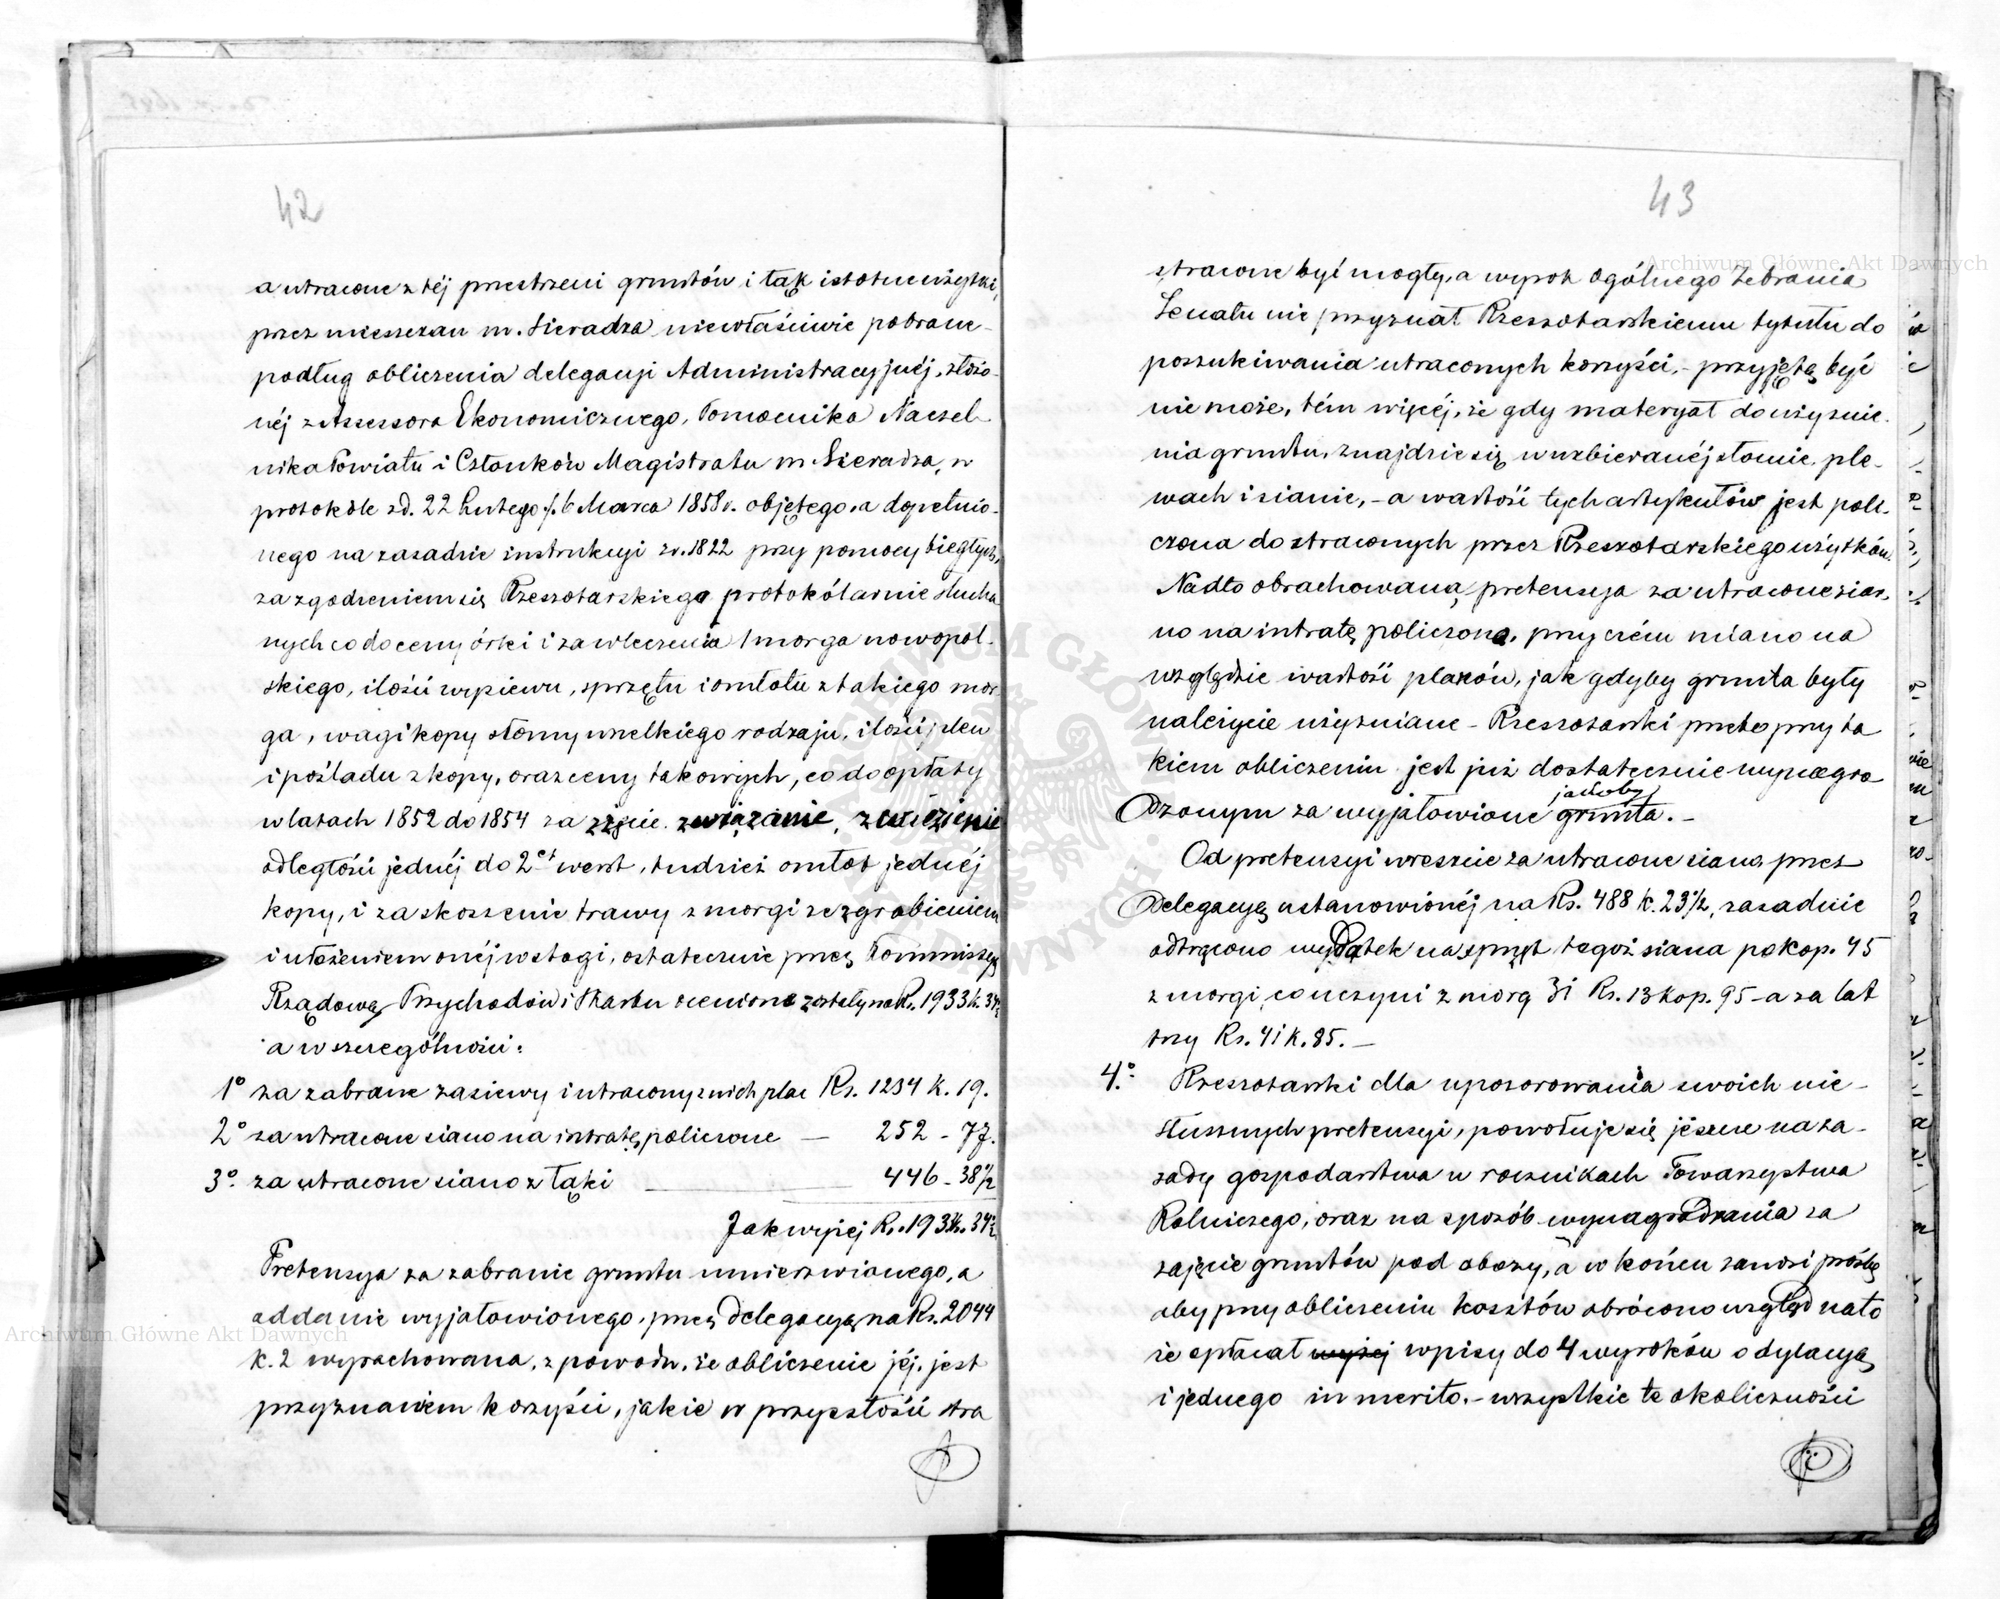 42
a utracone z téj przestrzeni gruntów i łąk istotne użytki,
przez mieszczan m. Sieradza niewłaściwie pobrane -
podług obliczenia delegacyi Administracyjnéj, złożo-
néj z Assessora Ekonomicznego, Pomocnika Naczel-
nika Powiatu i Członków Magistratu m. Sieradza, w
protokóle z d. 22 Lutego /: 6 Marca 1858 r. objętego, a dopełnio-
nego na zasadzie instrukcyi z r. 1822 przy pomocy biegłych,
za zgodzeniem się Rzeszotarskiego protokólarnie słucha
nych co do ceny órki i zawleczenia 1 morga nowopol-
skiego, ilości wysiewu, sprzętu i omłotu z takiego mor
ga, wagi kopy słomy wszelkiego rodzaju, ilości plew
i pośladu z kopy, oraz ceny takowych, co do opłaty
w latach 1852 do 1854 za zżęcie, związanie, zwiezienie
odległości jednéj do 2ch werst, tudzież omłot jednéj
kopy, i za skoszenie trawy z morgi ze zgrabieniem
i ułożeniem onéj w stogi, ostatecznie przez Kommissyę
Rządową Przychodów i Skarbu ocenione zostały na Rs. 1933 k. 34½
a w szczególności:
1° za zabrane zasiewy i utracony z nich plac Rs. 1234 k. 19.
2° za utracone siano na intratę policzone — 252 - 77.
3° za utracone siano z łąki 446 - 38½
Jak wyżej Rs. 1933 k. 34½
Pretensya za zabranie gruntu umierzwionego, a
oddanie wyjałowionego, przez Delegacyę na Rs. 2044
k. 2 wyrachowana, z powodu, że obliczenie jéj, jest
przyznaniem korzyści, jakie w przyszłości stra
43
stracone być mogły, a wyrok Ogólnego Zebrania
Senatu nie przyznał Rzeszotarskiemu tytułu do
poszukiwania utraconych korzyści, - przyjętą być
nie może, tém więcéj, że gdy materyał do użyźnie-
nia gruntu, znajdzie się w uzbieranéj słomie, ple-
wach i sianie, - a wartość tych artykułów jest poli-
czona do straconych przez Rzeszotarskiego użytków.
Nadto obrachowaną, pretensya za utracone siar,
no na intratę policzona, przyczém miano na
względzie wartość plazów, jak gdyby grunta były
należycie użyźniane - Rzeszotarski przeto przy ta
kiem obliczeniu jest już dostatecznie wynagro
dzonym za wyjałowione jakoby grunta. -
Od pretensyi wreszcie za utracone siano, przez
Delegacyę ustanowionéj na Rs. 488 k. 23½, zasadnie
odtrącono wydatek na sprzęt tegoż siana po kop. 45
z morgi, co uczyni z morg 31 Rs. 13 kop. 95 - a za lat
trzy Rs. 41 k. 85. —
4.° Rzeszotarski dla upozorowania swoich nie -
słusznych pretensyi, powołuje się jészcze na za -
sady gospodarstwa w rocznikach Towarzystwa
Rolniczego, oraz na sposób wynagrodzenia za
zajęcie gruntów pod obozy, a w końcu zanosi prośbę
aby przy obliczeniu kosztów obrócono wzgląd na to
że opłacał wyżej wpisy do 4 wyroków o dylacyę
i jednego in merito. - wszystkie te okoliczności